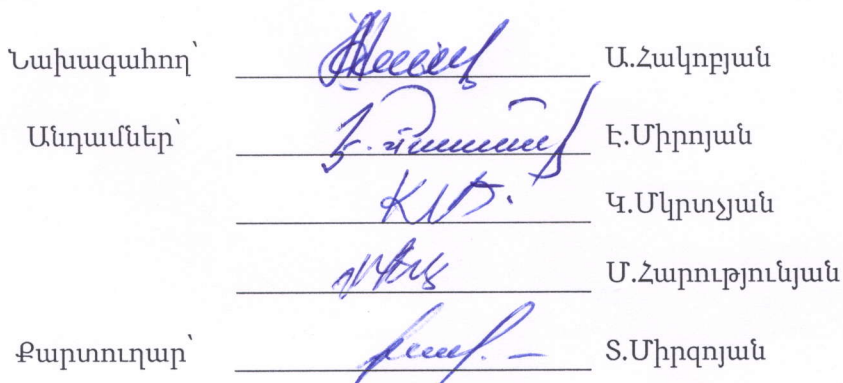 Նախագահող՝ Ա.Հակոբյան
Անդամներ՝ Է.Միրոյան
Կ.Մկրտչյան
Մ.Հարությունյան
Քարտուղար՝ Տ.Միրզոյան